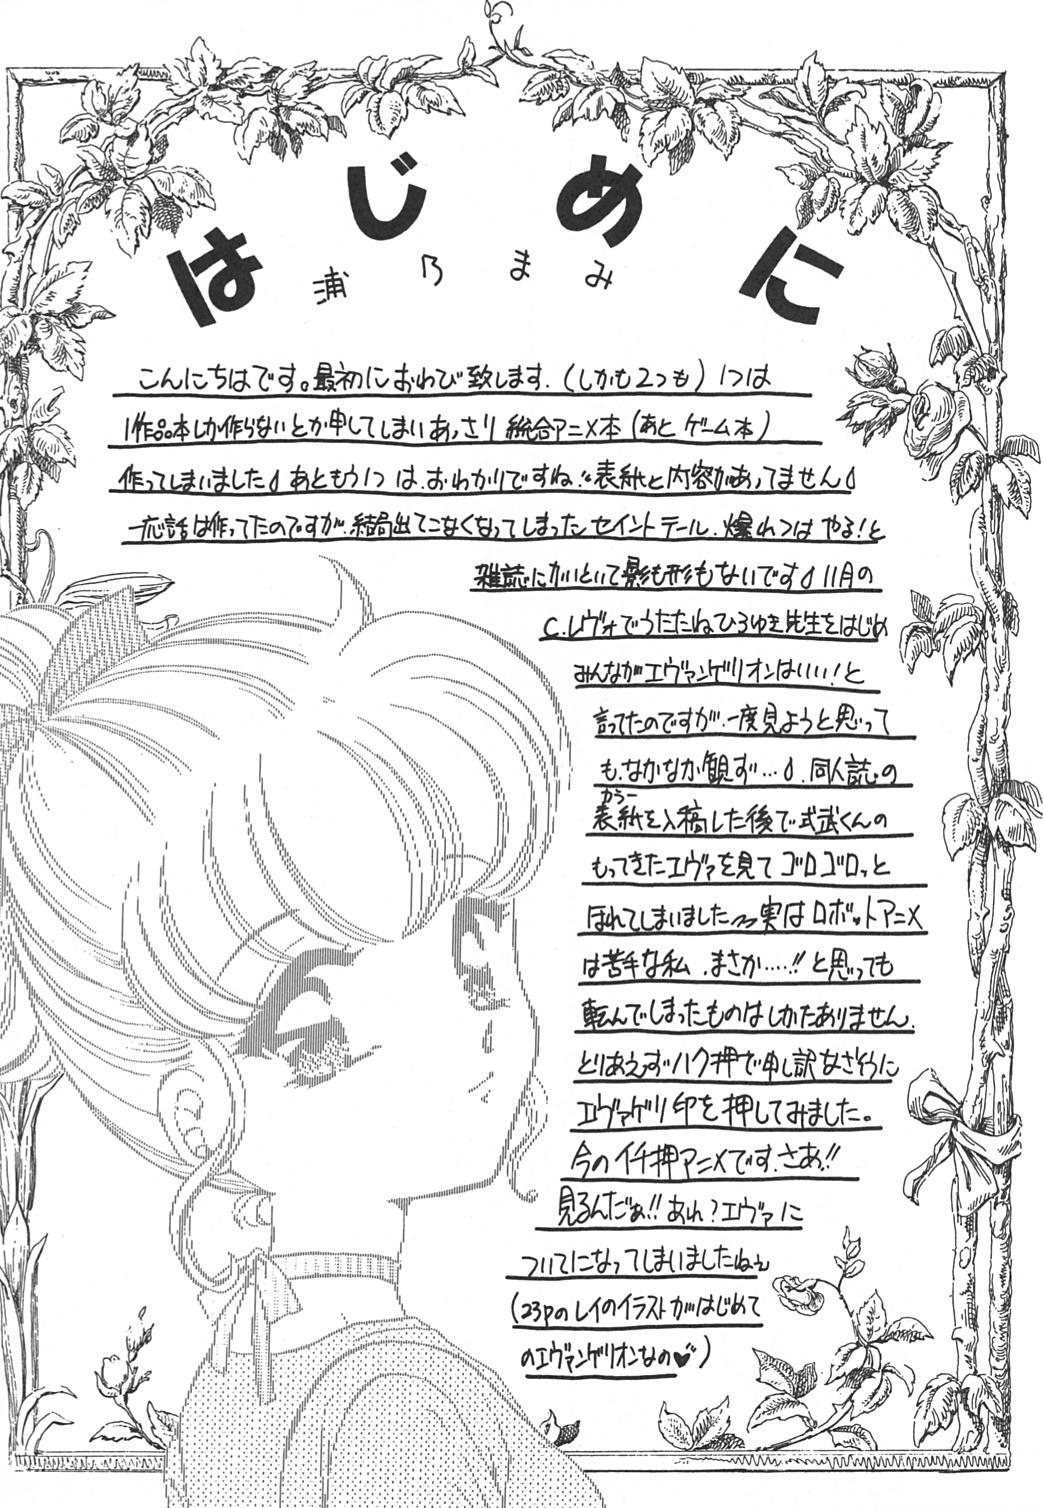 はじめに
浦乃まみ
こんにちはです。最初におわび致します.(しかも2つも)1つは
1作品本しか作らないとか申してしまいあっさり総合アニメ本(あとゲーム本)
作ってしまいました あともう1つは.おわかりですね."表紙と内容があってません
一応話は作ってたのですが.結局出てこなくなってしまったセイントテール.爆れつはやる!と
雑誌にかいといて影も形もないです 11月の
C.レヴォでうたたねひろゆき先生をはじめ
みんながエヴァンゲリオンはいい!と
言ってたのですが.一度見ようと思って
も.なかなか観ず… .同人誌の
カラー
表紙を入稿した後で式武くんの
もってきたエヴァを見てゴロゴロッと
ほれてしまいました〜実はロボットアニメ
は苦手な私.まさか‥‥!!と思っても
転んでしまったものはしかたありません.
とりあえずハク押で申し訳なさそうに
エヴァゲリ印を押してみました。
今のイチ押アニメです.さあ!!
見るんだぁ!!あれ?エヴァに
ついてになってしまいましたねぇ
(23Pのレイのイラストがはじめて
のエヴァンゲリオンなの♥)